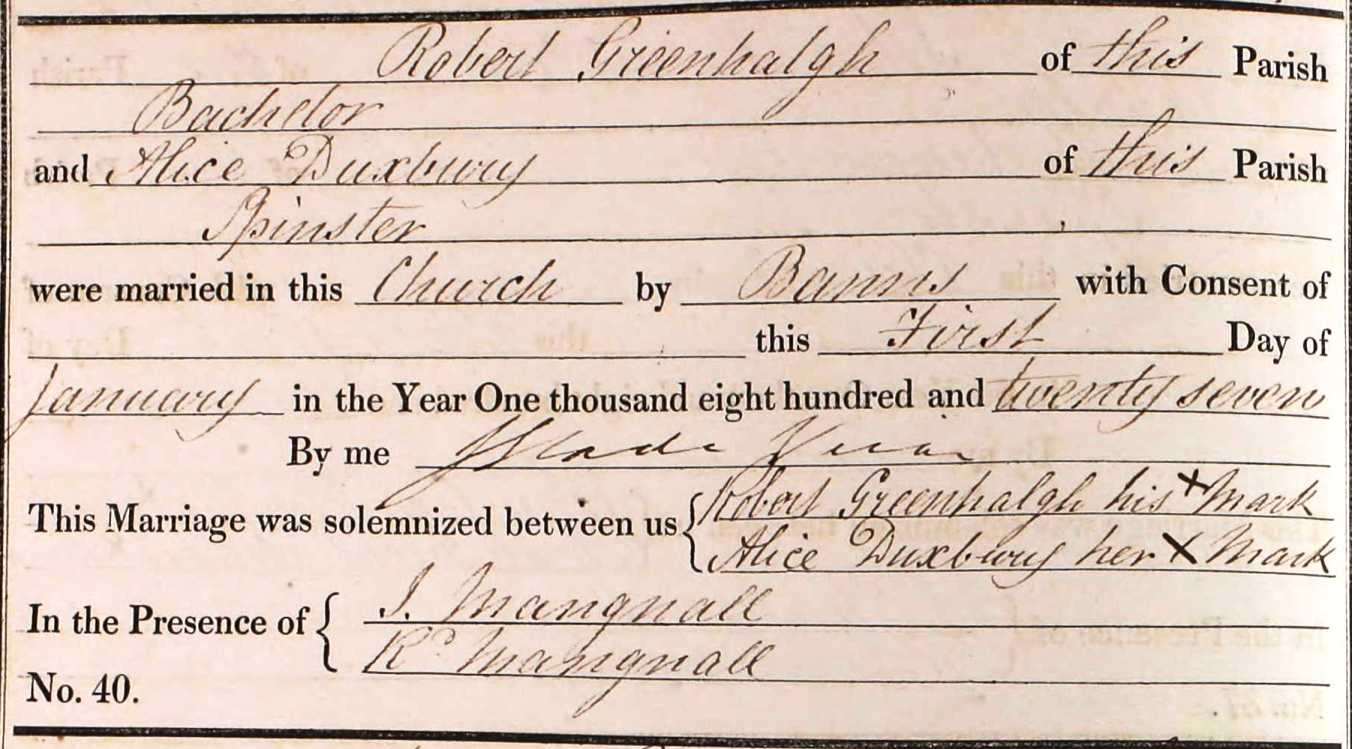 Robert Greenhalgh of this Parish
Bachelor
and Alice Duxbury of this Parish
Spinster
were married in this Church by Banns with Consent of
this First Day of
January in the Year One thousand eight hundred and twenty seven
By me J Slade Vicar
This Marriage was solemnized between us { Robert Greenhalgh his X Mark
Alice Duxbury her X Mark
In the Presence of { J. Mangnall
Rd Mangnall
No. 40.